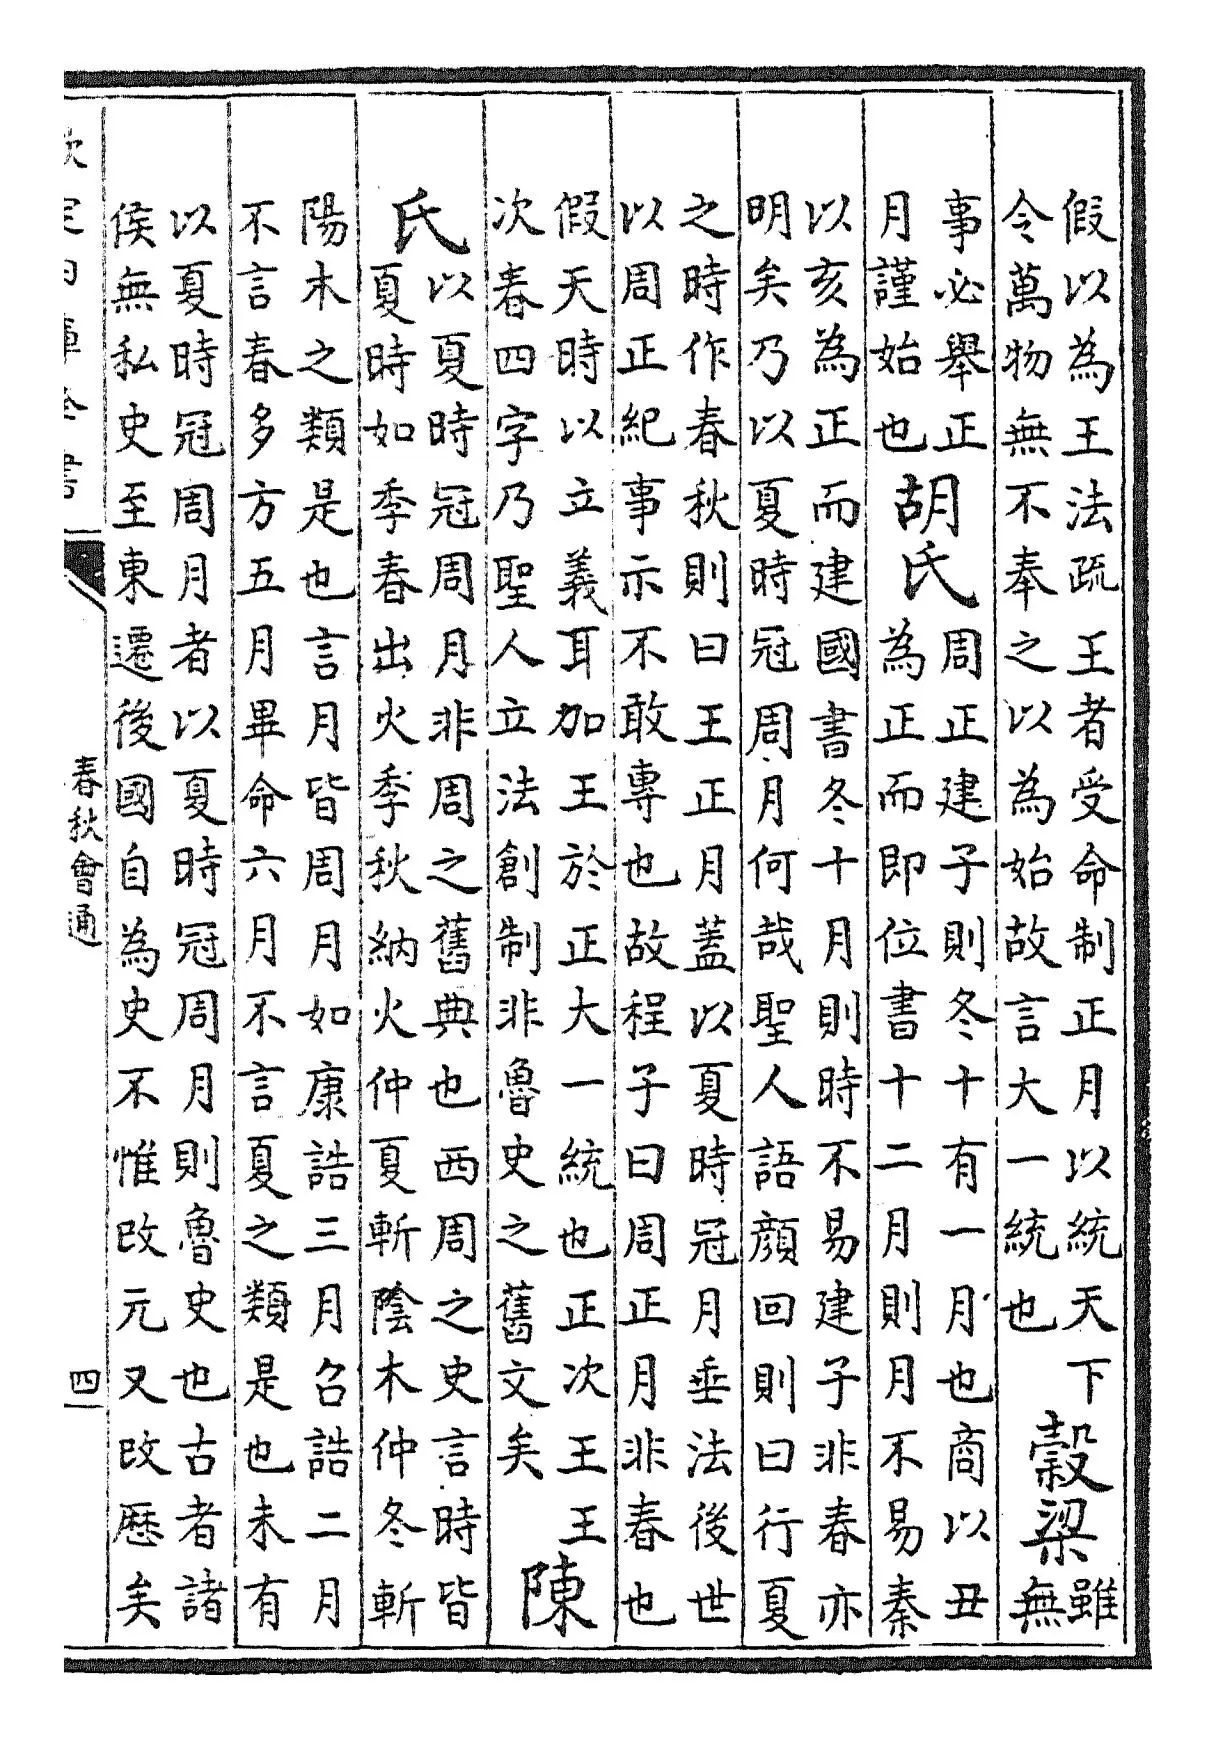 假以為王法疏王者受命制正月以統天下
令萬物無不奉之以為始故言大一統也
穀梁
雖
無
事必舉正
月謹始也
胡氏
周正建子則冬十有一月也商以丑
為正而即位書十二月則月不易秦
以亥為正而建國書冬十月則時不易建子非春亦
明矣乃以夏時冠周月何哉聖人語顏回則曰行夏
之時作春秋則曰王正月蓋以夏時冠月垂法後世
以周正紀事示不敢專也故程子曰周正月非春也
假天時以立義耳加王於正大一統也正次王王
次春四字乃聖人立法創制非魯史之舊文矣
陳
氏
以夏時冠周月非周之舊典也西周之史言時皆
夏時如季春出火季秋納火仲夏斬陰木仲冬斬
陽木之類是也言月皆周月如康誥三月召誥二月
不言春多方五月畢命六月不言夏之類是也未有
以夏時冠周月者以夏時冠周月則魯史也古者諸
侯無私史至東遷後國自為史不惟改元又改厯矣
欽定四庫全書
春秋會通
四